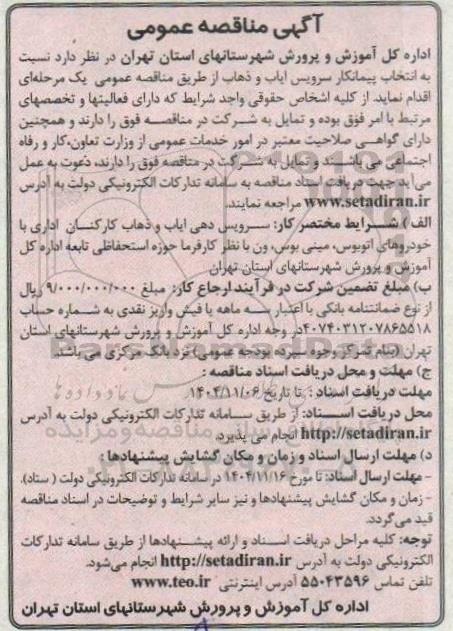 آگهی مناقصه عمومی
اداره کل آموزش و پرورش شهرستانهای استان تهران در نظر دارد نسبت
به انتخاب پیمانکار سرویس ایاب و ذهاب از طریق مناقصه عمومی یک مرحله‌ای
اقدام نماید. از کلیه اشخاص حقوقی واجد شرایط که دارای فعالیتها و تخصصهای
مرتبط با امر فوق بوده و تمایل به شرکت در مناقصه فوق را دارند و همچنین
دارای گواهی صلاحیت معتبر در امور خدمات عمومی از وزارت تعاون،کار و رفاه
اجتماعی می باشند و تمایل به شرکت در مناقصه فوق را دارند، دعوت به عمل
می‌آید جهت دریافت اسناد مناقصه به سامانه تدارکات الکترونیکی دولت به آدرس
www.setadiran.ir مراجعه نمایند.
الف ) شرایط مختصر کار: سرویس دهی ایاب و ذهاب کارکنان اداری با
خودروهای اتوبوس، مینی بوس، ون با نظر کارفرما حوزه استحفاظی تابعه اداره کل
آموزش و پرورش شهرستانهای استان تهران
ب) مبلغ تضمین شرکت در فرآیند ارجاع کار: مبلغ ۹/۰۰۰/۰۰۰/۰۰۰ ریال
از نوع ضمانتنامه بانکی با اعتبار سه ماهه یا فیش واریز نقدی به شماره حساب
۴۰۷۴۰۳۱۲۰۷۸۶۵۵۱۸در وجه اداره کل آموزش و پرورش شهرستانهای استان
تهران (بنام تمرکز وجوه سپرده بودجه عمومی) نزد بانک مرکزی می باشد.
ج) مهلت و محل دریافت اسناد مناقصه :
مهلت دریافت اسناد : تا تاریخ ۱۴۰۴/۱۱/۰۶
محل دریافت اسناد: از طریق سامانه تدارکات الکترونیکی دولت به آدرس
http://setadiran.ir انجام می پذیرد.
د) مهلت ارسال اسناد و زمان و مکان گشایش پیشنهادها :
- مهلت ارسال اسناد: تا مورخ ۱۴۰۴/۱۱/۱۶ در سامانه تدارکات الکترونیکی دولت ( ستاد).
- زمان و مکان گشایش پیشنهادها و نیز سایر شرایط و توضیحات در اسناد مناقصه
قید می‌گردد.
توجه: کلیه مراحل دریافت اسناد و ارائه پیشنهادها از طریق سامانه تدارکات
الکترونیکی دولت به آدرس http://setadiran.ir انجام می‌شود.
تلفن تماس ۵۵۰۴۳۵۹۶ آدرس اینترنتی www.teo.ir
اداره کل آموزش و پرورش شهرستانهای استان تهران